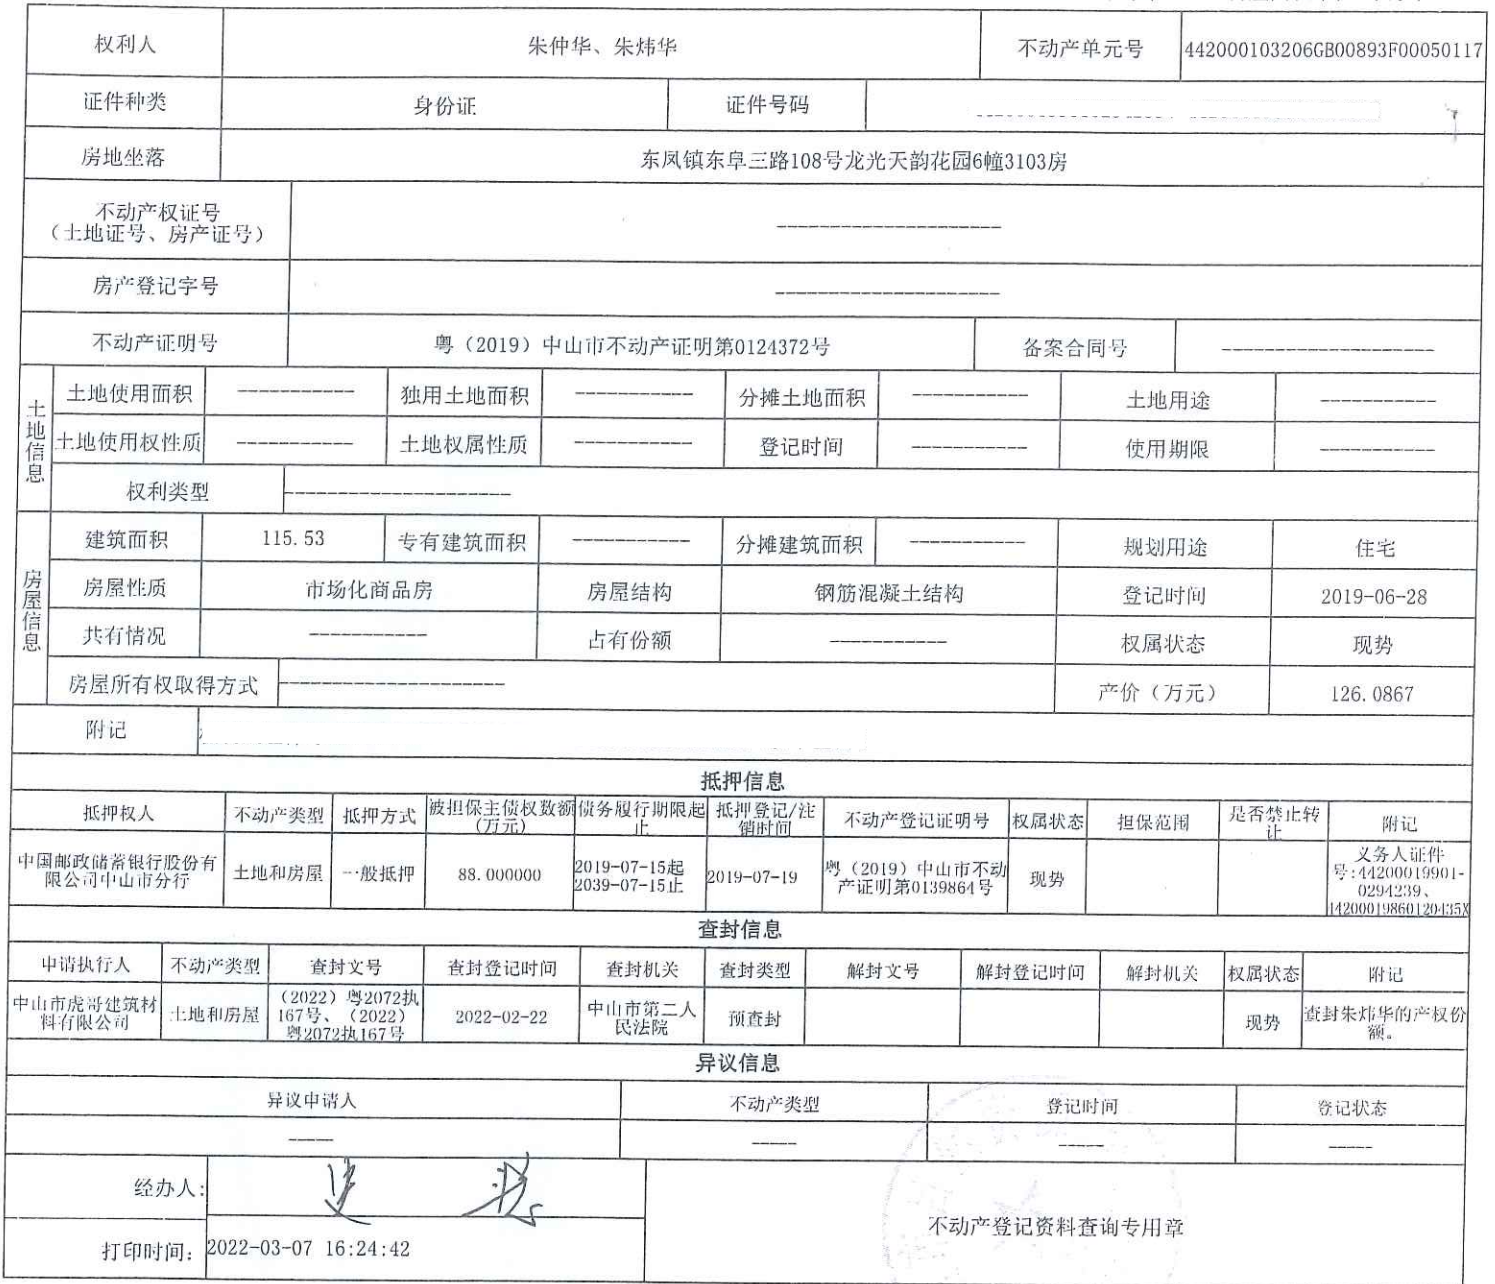 权利人 朱仲华、朱炜华 不动产单元号 442000103206GB00893F00050117
证件种类 身份证 证件号码
房地坐落 东凤镇东阜三路108号龙光天韵花园6幢3103房
不动产权证号
（土地证号、房产证号） ---------------------
房产登记字号 ---------------------
不动产证明号 粤（2019）中山市不动产证明第0124372号 备案合同号 --------------------
土地信息
土地使用面积 ----------- 独用土地面积 ----------- 分摊土地面积 ----------- 土地用途 -----------
土地使用权性质 ----------- 土地权属性质 ----------- 登记时间 ----------- 使用期限 -----------
权利类型 ---------------------
房屋信息
建筑面积 115.53 专有建筑面积 ----------- 分摊建筑面积 ----------- 规划用途 住宅
房屋性质 市场化商品房 房屋结构 钢筋混凝土结构 登记时间 2019-06-28
共有情况 ----------- 占有份额 ----------- 权属状态 现势
房屋所有权取得方式 --------------------- 产价（万元） 126.0867
附记
抵押信息
抵押权人 不动产类型 抵押方式 被担保主债权数额(万元) 债务履行期限起止 抵押登记/注销时间 不动产登记证明号 权属状态 担保范围 是否禁止转让 附记
中国邮政储蓄银行股份有限公司中山市分行 土地和房屋 一般抵押 88.000000 2019-07-15起 2039-07-15止 2019-07-19 粤（2019）中山市不动产证明第0139864号 现势 义务人证件号:44200019901-0294239、
查封信息
申请执行人 不动产类型 查封文号 查封登记时间 查封机关 查封类型 解封文号 解封登记时间 解封机关 权属状态 附记
中山市虎哥建筑材料有限公司 土地和房屋 （2022）粤2072执167号、（2022）粤2072执167号 2022-02-22 中山市第二人民法院 预查封 现势 查封朱炜华的产权份额。
异议信息
异议申请人 不动产类型 登记时间 登记状态
----- ----- ----- -----
经办人:
打印时间: 2022-03-07 16:24:42
不动产登记资料查询专用章